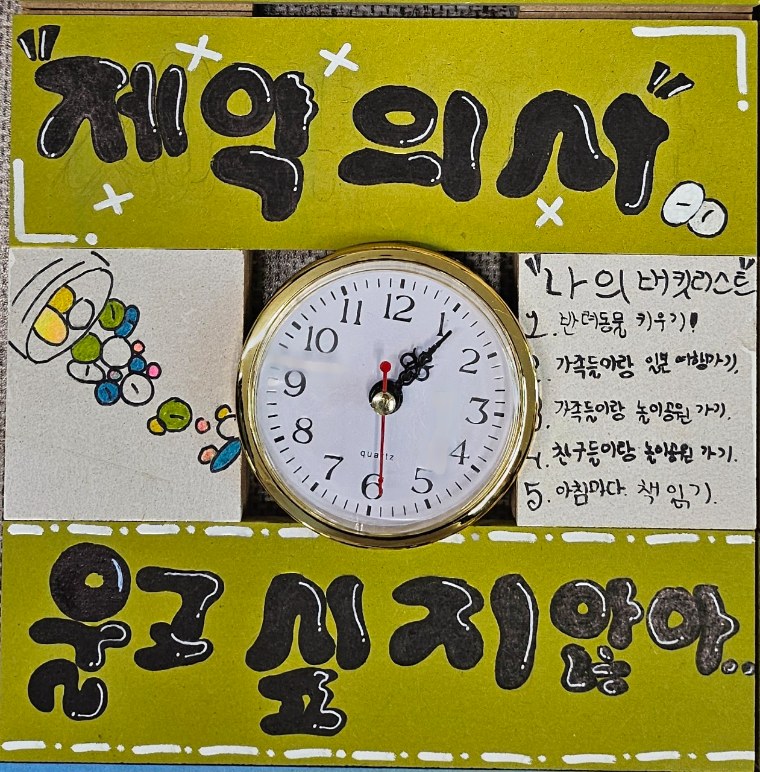 "제약의사"
"나의 버킷리스트"
1. 반려동물 키우기!
2. 가족들이랑 일본 여행가기.
3. 가족들이랑 놀이공원 가기.
4. 친구들이랑 놀이공원 가기.
5. 아침마다 책 읽기.
12
1
2
3
4
5
6
7
8
9
10
11
quartz
울고 싶지 않아..